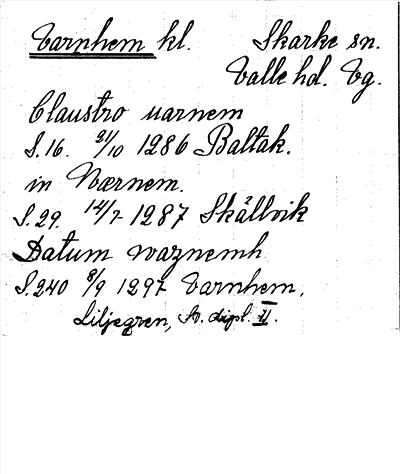 Varnhem kl. Skarke sn.
Valle hd. Vg.
Claustro uarnem
S. 16. 31/10 1286 Baltak.
in Wærnem.
S. 29. 14/7 1287 Skällvik
Datum waznemh
S. 240 8/9 1297 Varnhem.
Liljegren, Sv. dipl. II.